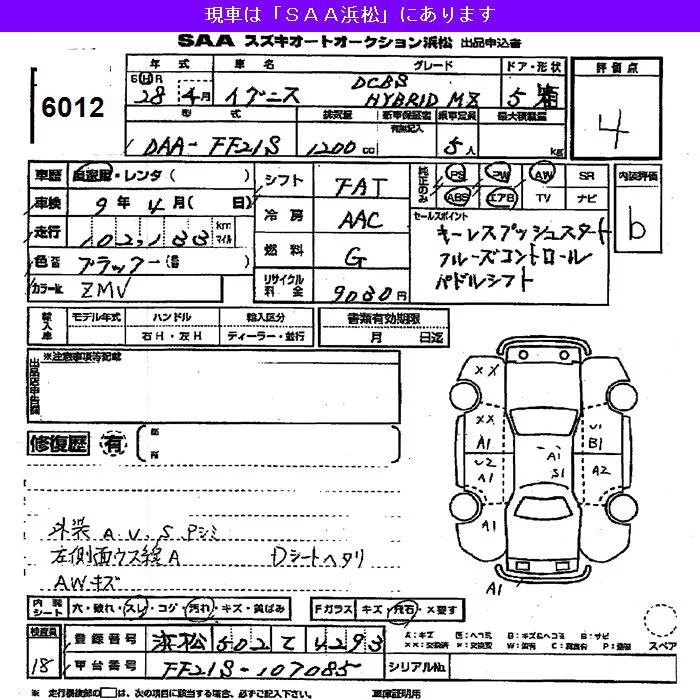 現車は「SAA浜松」にあります
SAA スズキオートオークション浜松 出品申込書
6012
年式 車名 グレード ドア・形状 評価点
SHR 28年 4月 イグニス DCBS HYBRID MZ 5 箱 4
型式 排気量 新車保証書 有無記入 乗車定員 最大積載量
DAA-FF21S 1200cc 5人 kg
車歴 自家用・レンタ( )
車検 9年 4月( 日)
走行 102,133 km マイル
色 ブラック( )
カラーNo. ZMV
シフト FAT
冷房 AAC
燃料 G
リサイクル料金 9030円
純正のみ PS PW AW SR
ABS エアB TV ナビ
内装評価 b
セールスポイント
キーレスプッシュスタート
クルーズコントロール
パドルシフト
輸入車 モデル年式 ハンドル 輸入区分 書類有効期限
右H・左H ディーラー・並行 月 日迄
出品店申告欄 ※注意事項等記載
修復歴 有 箇所
XX
XX
A1
U2
A1
A1
A1
S1
U1
B1
A2
A1
外装 A.U.S.Pシミ
左側面ウス線A Dシートヘタリ
AWキズ
内装シート 穴・破れ・スレ・コゲ・汚れ・キズ・黄ばみ Fガラス キズ・飛石・X要す
検査員 18
登録番号 浜松 502 て 4293
車台番号 FF21S-107085 シリアルNo.
A:キズ E:エクボ B:キズ&ヘコミ S:サビ
XX:交換済 X:交換要 W:波有 C:腐食有 P:塗装
スペア
※ 走行機検部の□は、次の項目に該当する場合、必ずご記入下さい。 車庫証明用